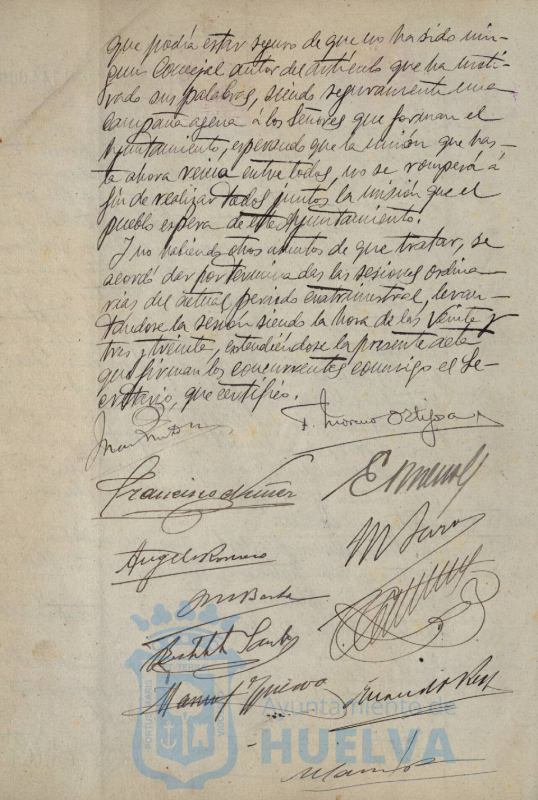 que podía estar seguro de que no ha sido nin-
gun Concejal autor del artículo que ha moti-
vado sus palabras, siendo seguramente una
campaña agena á los Señores que forman el
Ayuntamiento, esperando que la unión que has-
ta ahora reina entre todos, no se romperá á
fin de realizar todos juntos la misión que el
pueblo espera de este Ayuntamiento.
Y no habiendo otros asuntos de que tratar, se
acordó dar por terminadas las sesiones ordina-
rias del actual periodo cuatrimestral, levan-
tándose la sesión siendo la hora de las veinte y
tres y treinta, extendiéndose la presente acta
que firman los concurrentes conmigo el Se-
cretario, que certifico.
F. Moreno Ortega
Francisco Nuñez
Angel Romero
M Jara
Manuel
Ayuntamiento de
HUELVA